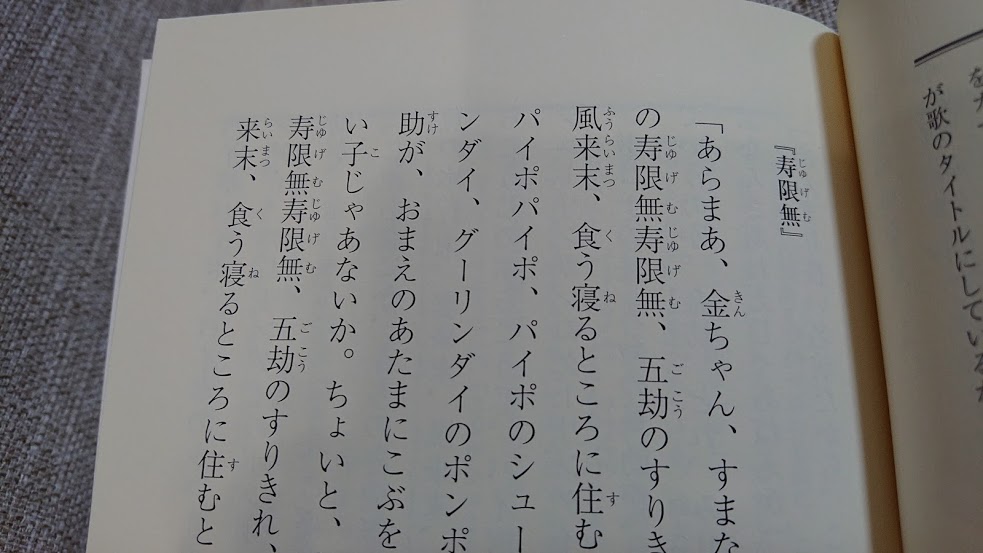 が歌のタイトルにしている
『寿限無』
「あらまあ、金ちゃん、すまな
の寿限無寿限無、五劫のすりき
風来末、食う寝るところに住む
パイポパイポ、パイポのシュー
ンダイ、グーリンダイのポンポ
助が、おまえのあたまにこぶを
い子じゃあないか。ちょいと、
寿限無寿限無、五劫のすりきれ、
来末、食う寝るところに住むと